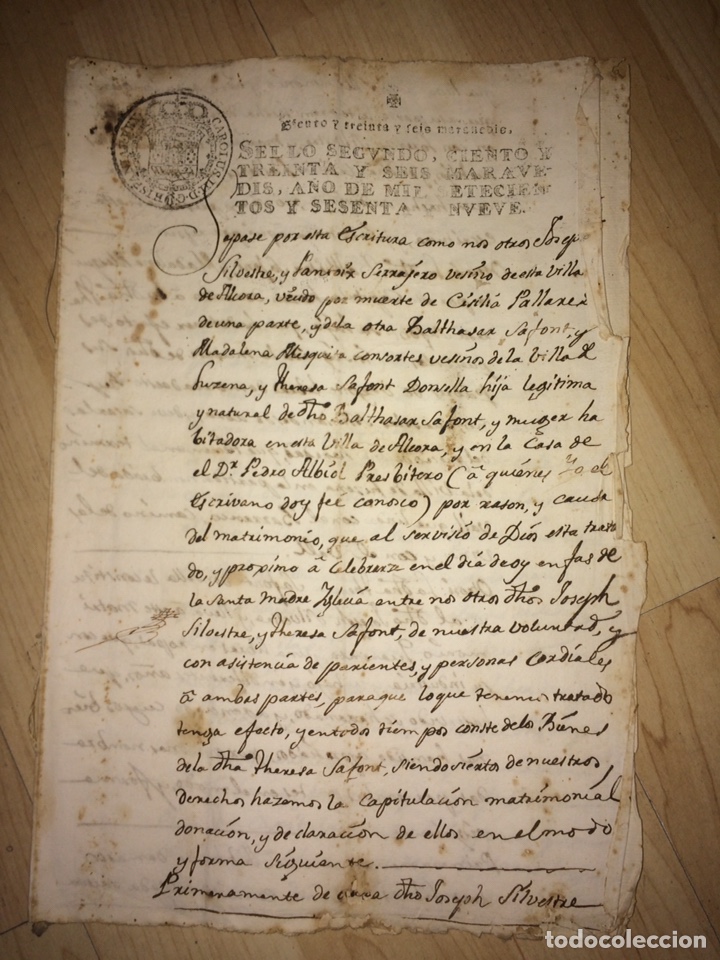 Siento y treinta y seis marauedis.
SELLO SEGVNDO, CIENTO Y
TREINTA Y SEIS MARAVE-
DIS, AÑO DE MIL ETECIEN-
TOS Y SESENTA NVEVE.
CAROLUS III D G HISP
Sepase por esta Escritura como nos otros Josep
Silvestre, y Serrajero vesino de esta Villa
de Alcora, viudo por muerte de Cisilia Pallarez
de una parte, y dela otra Balthasar Safont, y
Madalena Mesquita consortes vesinos de la Villa de
Luzena, y Theresa Safont Donsella hija legitima
y natural de dho Balthasar Safont, y muger ha
bitadora en esta Villa de Alcora, y en la Casa de
el Dr. Pedro Albiol Presbitero (â quiénes Yo el
Escrivano doy feé conosco) por rason, y causa
del matrimonio, que al servisio de Dios esta trata
do, y proximo â Celebrarze en el dia de oy en fas de
la Santa Madre Yglecia entre nos otros dhos Joseph
Silvestre, y Theresa Safont, de nuestra voluntad, y
con asistencia de parientes, y personas cordiales
â ambas partes, paraque loque tenemos tratado
tenga efecto, y entodo tiempos conste delos Biénes
dela dha Theresa Safont, siendo siertos de nuestros
derechos hazamos la capitulación matrimonial
donación, y declaración de ellos en el modo
y forma siguiente.
Primeramente declara dho Joseph Silvestre
todocoleccion
todocoleccion.net